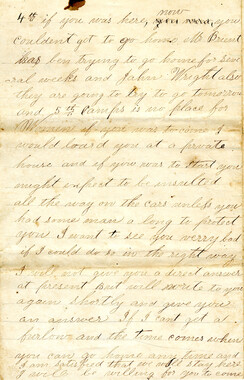 4th if you was here, now
couldent get to go home Mr
has ben trying to go home for Sev
ral weeks and John Wright also
they are going to try to go tomorrow
and 5th Camps is no place for
Women if you was to come I
would board you at a private
house and if you was to start you
might expect to be insulted
all the way on the cars unless you
had some man a long to protect
you I want to see you worry bad
if I could do so in the right way
I will not give you a direct answer
at present but will write to you
again shortly and give you
an answer If I cant get a
furlow and the time comes when
you can go home any time and
I am satisfied that we will stay here
I will be willing for you to come